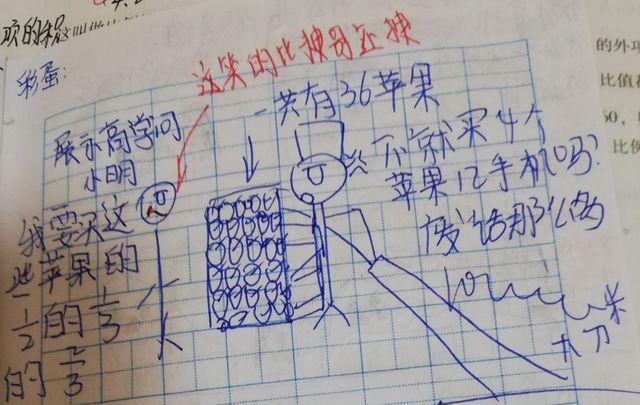 项的积这叫做比
彩蛋:
这笑的比哥还
一共有36苹果
展示高学问
小明
我要买这
些苹果的
1/2的1/3
的2/3
不就买4个
苹果12手机吗?
废话那么多
米
大刀
的外项
比值
50,
比例